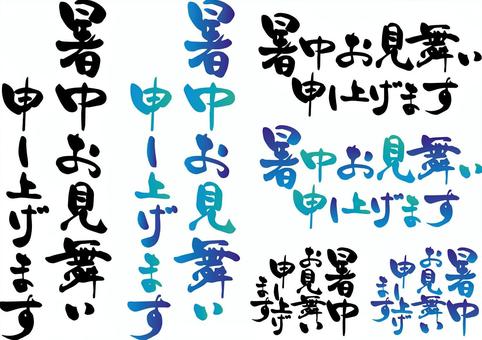 暑中お見舞い
申し上げます
暑中お見舞い
申し上げます
暑中お見舞い
申し上げます
暑中お見舞い
申し上げます
暑中
お見舞い
申し上げ
ます
暑中
お見舞い
申し上げ
ます